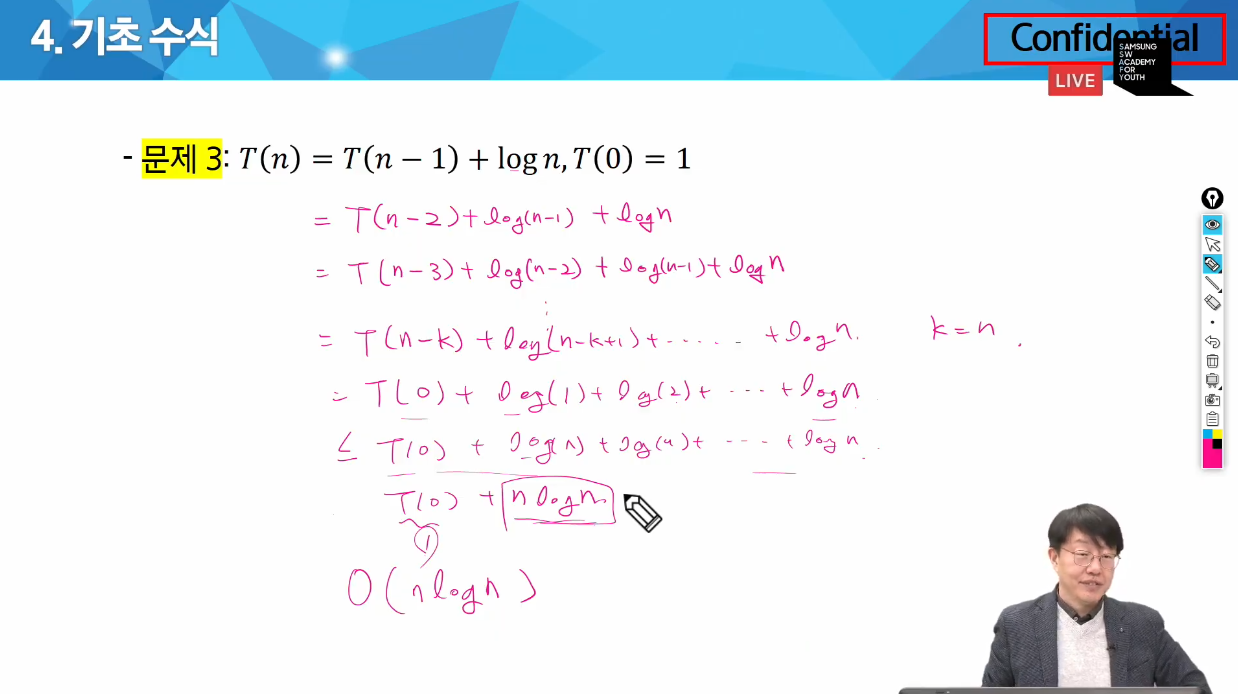 4. 기초 수식
Confidential
SAMSUNG
SW
ACADEMY
FOR
YOUTH
LIVE
- 문제 3: T(n) = T(n − 1) + log n, T(0) = 1
= T(n-2) + log(n-1) + log n
= T(n-3) + log(n-2) + log(n-1) + log n
⋮
= T(n-k) + log(n-k+1) + ······ + log n. k = n.
= T(0) + log(1) + log(2) + ··· + log n
≤ T(0) + log(n) + log(n) + ··· + log n.
T(0) + n log n
1
O(n log n)